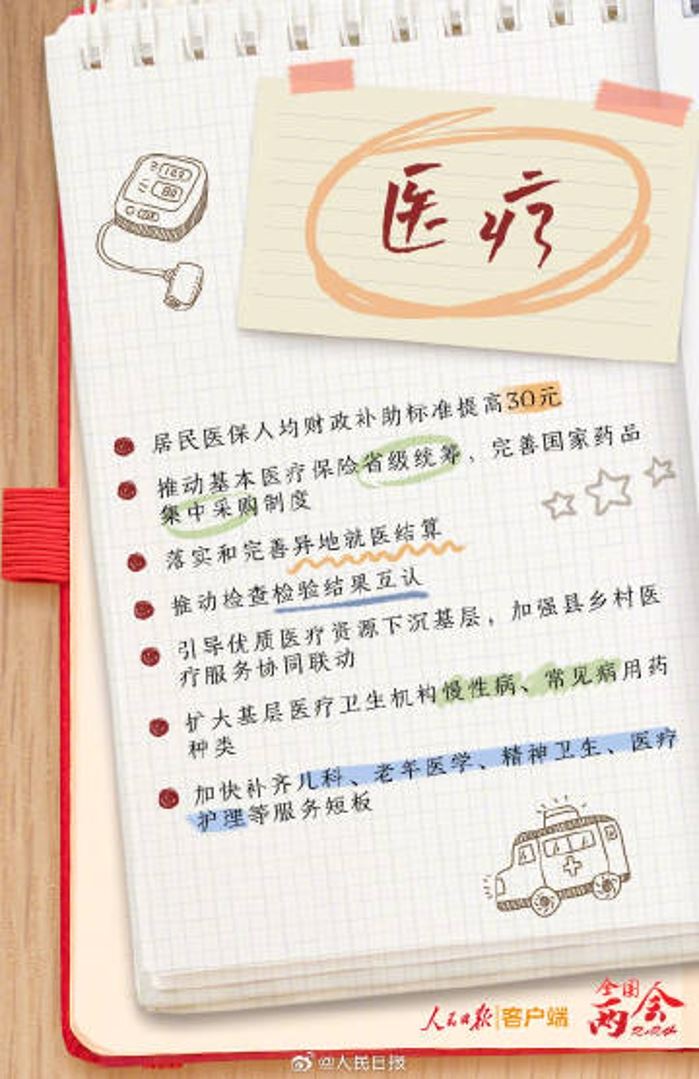 医疗
居民医保人均财政补助标准提高30元
推动基本医疗保险省级统筹，完善国家药品
集中采购制度
落实和完善异地就医结算
推动检查检验结果互认
引导优质医疗资源下沉基层，加强县乡村医
疗服务协同联动
扩大基层医疗卫生机构慢性病、常见病用药
种类
加快补齐儿科、老年医学、精神卫生、医疗
护理等服务短板
人民日报|客户端
全国
两会
2024
@人民日报